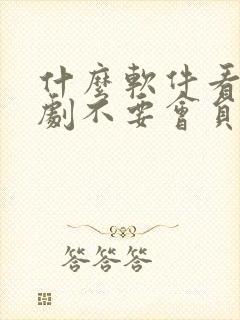 什麼軟件看
劇不要會員
答答答